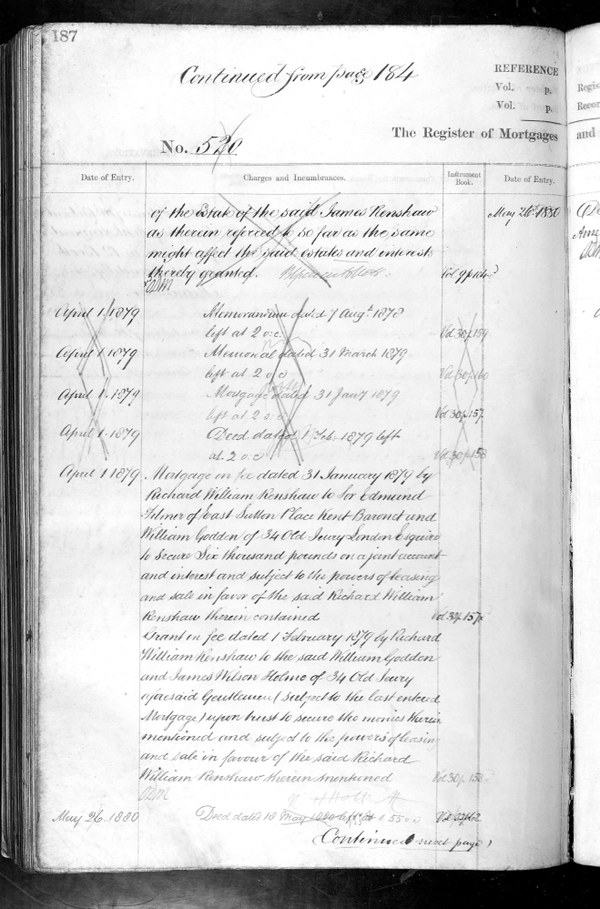 187
Continued from page 184
REFERENCE
Vol. p.
Vol. p.
No. 520
The Register of Mortgages
and
Date of Entry.
Charges and Incumbrances.
Instrument Book.
Date of Entry.
of the Estate of the said James Renshaw
May 26th 1880
as therein referred to so far as the same
might affect the said estates and interests
thereby granted.
Vol 9 p
April 1 1879
Memorandum dated 7 Augt 1878
left at 2 o.c.
Vol 30 p 159
April 1 1879
Memorial dated 31 March 1879
left at 2 o c
Vol 30 p 160
April 1. 1879
Mortgage dated 31 Jany 1879
left at 2 o.c
Vol 30 p 157
April 1. 1879
Deed dated 1 Feb. 1879 left
at 2 o.c
Vol 30 p 158
April 1 1879
Mortgage in fee dated 31 January 1879 by
Richard William Renshaw to Sir Edmund
Filmer of East Sutton Place Kent Baronet and
William Godden of 34 Old Jewry London Esquire
to Secure Six thousand pounds on a joint account
and interest and subject to the powers of leasing
and sale in favor of the said Richard William
Renshaw therein contained
Vol 30 p 157
Grant in fee dated 1 February 1879 by Richard
William Renshaw to the said William Godden
and James Wilson Holme of 34 Old Jewry
aforesaid Gentlemen (subject to the last entered
Mortgage) upon trust to secure the monies therein
mentioned and subject to the powers of leasing
and sale in favour of the said Richard
William Renshaw therein mentioned
Vol 30 p 158
May 26. 1880
Deed dated 18 May 1880 left at
Continued next page)